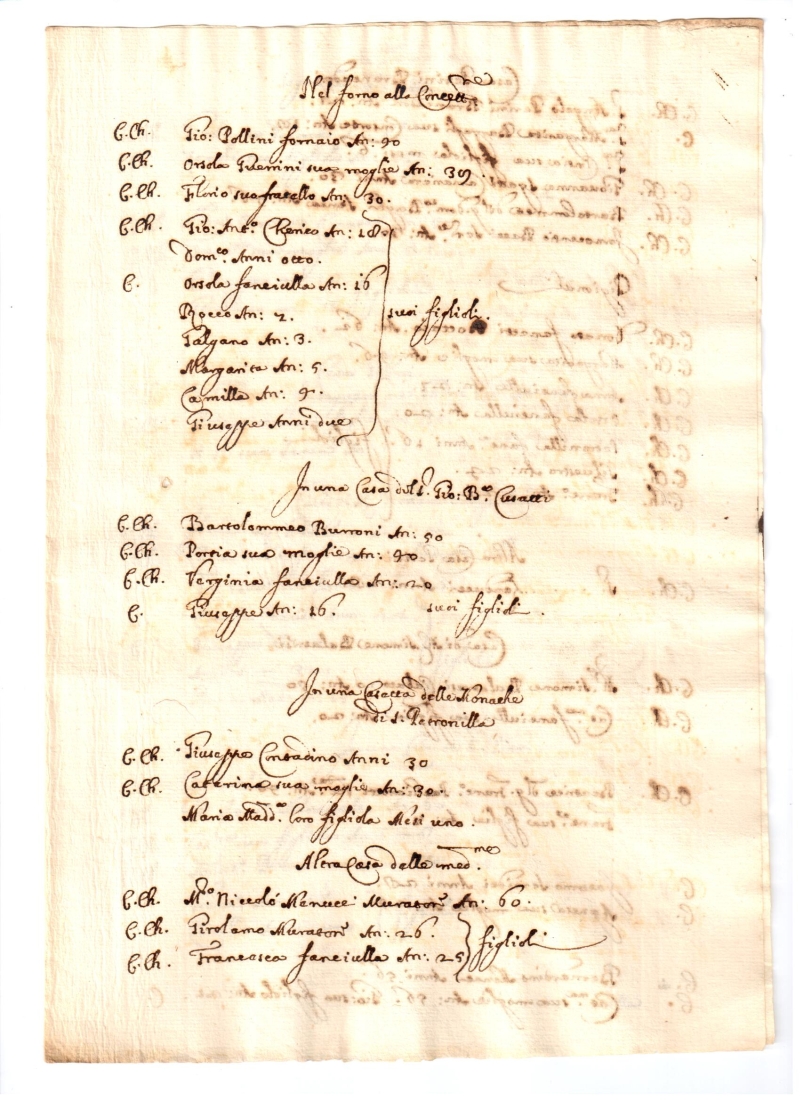 Nel forno alla Concett.ne
C. Ch. Gio: Pollini fornaio An: 40
C. Ch. Orsola Guerrini sua moglie An: 39.
C. Ch. Florio suo fratello An: 30.
C. Ch. Gio: Ant.o Cherico An: 18.
Dom.co Anni otto.
C. Orsola fanciulla An: 16
Rocco An: 2.
Galgano An: 3. suoi figlioli.
Margarita An: 5.
Camilla An: 9.
Giuseppe Anni due
In una Casa del S.r Gio: B.a Cusatti
C. Ch. Bartolommeo Burroni An: 50
C. Ch. Portia sua moglie An: 40
C. Ch. Verginia fanciulla An: 20
C. Giuseppe An: 16. suoi figlioli.
In una Casetta delle Monache
di S. Petronilla
C. Ch. Giuseppe Contadino Anni 30
C. Ch. Caterina sua moglie An: 30.
Maria Madd.a loro figliola Mesi uno.
Altra Casa delle med.me
C. Ch. M.ro Niccolò Manucci Murator An: 60.
C. Ch. Girolamo Murator An: 26.
C. Ch. Francesca fanciulla An: 25 figlioli